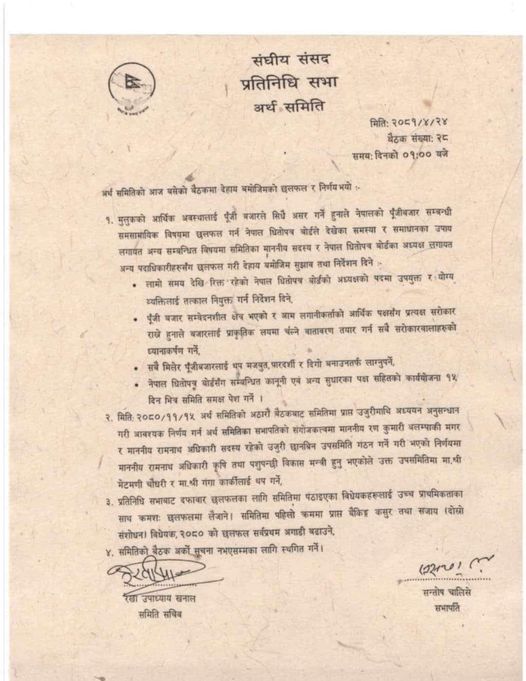 संघीय संसद
प्रतिनिधि सभा
अर्थ समिति
मिति: २०८१/४/२४
बैठक संख्या: २८
समय: दिनको ०१:०० बजे
अर्थ समितिको आज बसेको बैठकमा देहाय बमोजिमको छलफल र निर्णय भयो :-
१. मुलुकको आर्थिक अवस्थालाई पूँजी बजारले सिधै असर गर्ने हुनाले नेपालको पूँजीबजार सम्बन्धी
समसामयिक विषयमा छलफल गर्न नेपाल धितोपत्र बोर्डले देखेका समस्या र समाधानका उपाय
लगायत अन्य सम्बन्धित विषयमा समितिका माननीय सदस्य र नेपाल धितोपत्र बोर्डका अध्यक्ष लगायत
अन्य पदाधिकारीहरूसँग छलफल गरी देहाय बमोजिम सुझाव तथा निर्देशन दिने :-
• लामो समय देखि रिक्त रहेको नेपाल धितोपत्र बोर्डको अध्यक्षको पदमा उपयुक्त र योग्य
व्यक्तिलाई तत्काल नियुक्त गर्न निर्देशन दिने,
• पूँजी बजार सम्वेदनशील क्षेत्र भएको र आम लगानीकर्ताको आर्थिक पक्षसँग प्रत्यक्ष सरोकार
राख्ने हुनाले बजारलाई प्राकृतिक लयमा चल्ने वातावरण तयार गर्न सबै सरोकारवालाहरुको
ध्यानाकर्षण गर्ने,
• सबै मिलेर पूँजीबजारलाई थप मजवुत,पारदर्शी र दिगो बनाउनतर्फ लाग्नुपर्ने,
• नेपाल धितोपत्र बोर्डसँग सम्बन्धित कानूनी एवं अन्य सुधारका पक्ष सहितको कार्ययोजना १५
दिन भित्र समिति समक्ष पेश गर्ने ।
२. मिति २०८०/११/१५ अर्थ समितिको अठारौं बैठकबाट समितिमा प्राप्त उजुरीमाथि अध्ययन अनुसन्धान
गरी आवश्यक निर्णय गर्न अर्थ समितिका सभापतिको संयोजकत्वमा माननीय रण कुमारी बलम्पाकी मगर
र माननीय रामनाथ अधिकारी सदस्य रहेको उजुरी छानबिन उपसमिति गठन गर्ने गरी भएको निर्णयमा
माननीय रामनाथ अधिकारी कृषि तथा पशुपन्छी विकास मन्त्री हुनु भएकोले उक्त उपसमितिमा मा.श्री
मेटमणी चौधरी र मा.श्री गंगा कार्कीलाई थप गर्ने,
३. प्रतिनिधि सभाबाट दफावार छलफलका लागि समितिमा पठाइएका विधेयकहरूलाई उच्च प्राथमिकताका
साथ क्रमशः छलफलमा लैजाने। समितिमा पहिलो क्रममा प्राप्त बैंकिङ्ग कसुर तथा सजाय (दोस्रो
संशोधन) विधेयक, २०८० को छलफल सर्वप्रथम अगाडी बढाउने,
४. समितिको बैठक अर्को सूचना नभएसम्मका लागि स्थगित गर्ने।
रेखा उपाध्याय खनाल
समिति सचिव
सन्तोष चालिसे
सभापति